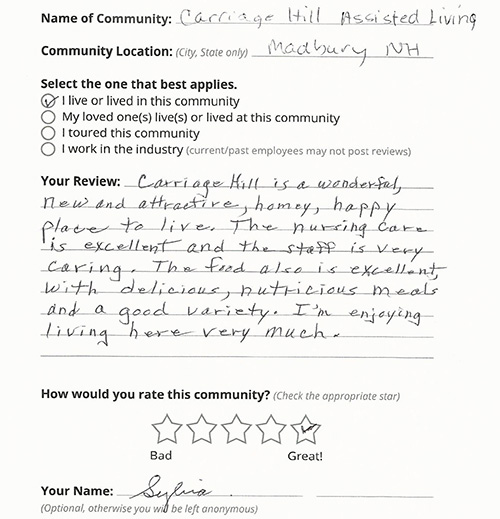 Name of Community: Carriage Hill Assisted Living
Community Location: (City, State only) Madbury NH
Select the one that best applies.
I live or lived in this community
My loved one(s) live(s) or lived at this community
I toured this community
I work in the industry (current/past employees may not post reviews)
Your Review: Carriage Hill is a wonderful,
new and attractive, homey, happy
place to live. The nursing care
is excellent and the staff is very
caring. The food also is excellent,
with delicious, nutricious meals
and a good variety. I'm enjoying
living here very much.
How would you rate this community? (Check the appropriate star)
Bad Great!
Your Name: Sylvia
(Optional, otherwise you will be left anonymous)